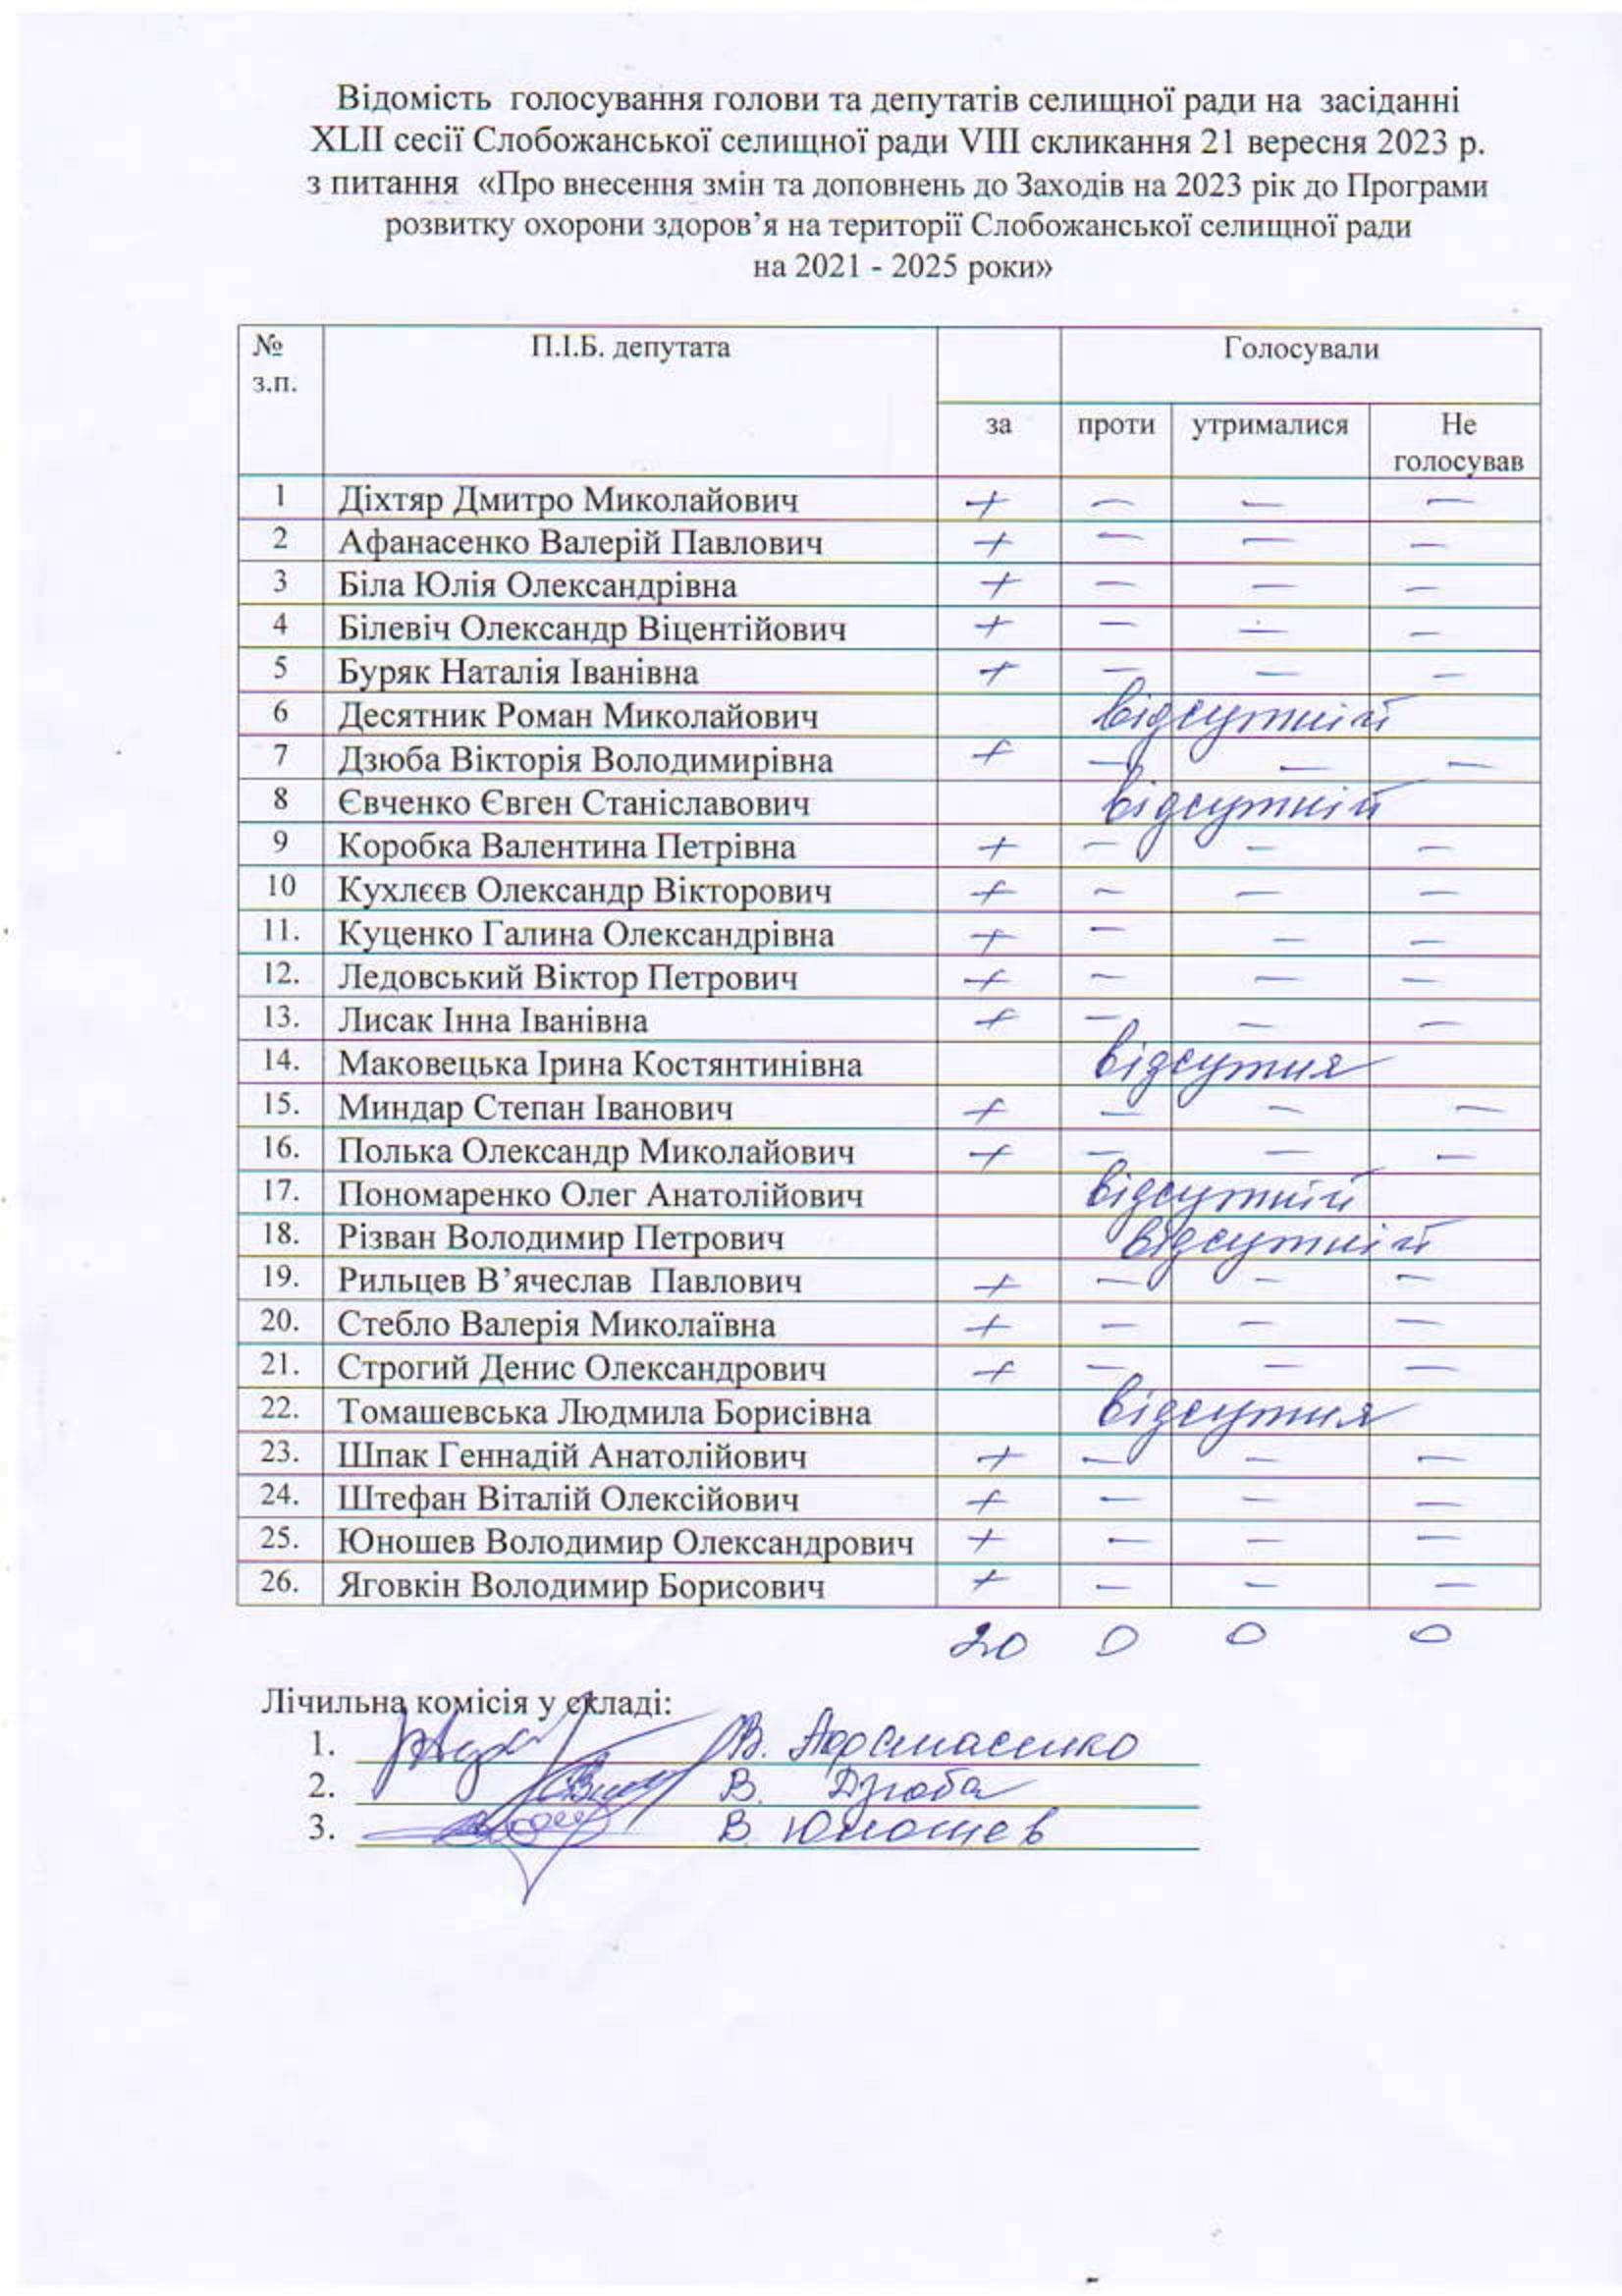 Відомість голосування голови та депутатів селищної ради на засіданні
XLII сесії Слобожанської селищної ради VIII скликання 21 вересня 2023 р.
з питання «Про внесення змін та доповнень до Заходів на 2023 рік до Програми
розвитку охорони здоров’я на території Слобожанської селищної ради
на 2021 - 2025 роки»
№ з.п. П.І.Б. депутата Голосували
за проти утрималися Не голосував
1 Діхтяр Дмитро Миколайович + – – –
2 Афанасенко Валерій Павлович + – – –
3 Біла Юлія Олександрівна + – – –
4 Білевіч Олександр Віцентійович + – – –
5 Буряк Наталія Іванівна + – – –
6 Десятник Роман Миколайович відсутній
7 Дзюба Вікторія Володимирівна + – – –
8 Євченко Євген Станіславович відсутній
9 Коробка Валентина Петрівна + – – –
10 Кухлєєв Олександр Вікторович + – – –
11. Куценко Галина Олександрівна + – – –
12. Ледовський Віктор Петрович + – – –
13. Лисак Інна Іванівна + – – –
14. Маковецька Ірина Костянтинівна відсутня
15. Миндар Степан Іванович + – – –
16. Полька Олександр Миколайович + – – –
17. Пономаренко Олег Анатолійович відсутній
18. Різван Володимир Петрович відсутній
19. Рильцев В’ячеслав Павлович + – – –
20. Стебло Валерія Миколаївна + – – –
21. Строгий Денис Олександрович + – – –
22. Томашевська Людмила Борисівна відсутня
23. Шпак Геннадій Анатолійович + – – –
24. Штефан Віталій Олексійович + – – –
25. Юношев Володимир Олександрович + – – –
26. Яговкін Володимир Борисович + – – –
20 0 0 0
Лічильна комісія у складі:
1. В. Афанасенко
2. В. Дзюба
3. В. Юношев